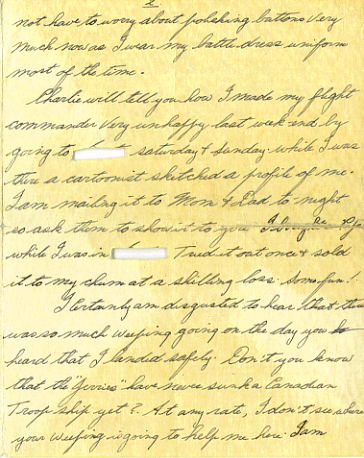 2
not have to worry about polishing buttons very
much now as I wear my battle dress uniform
most of the time.
Charlie will tell you how I made my flight
commander very unhappy last week-end by
going to saturday & Sunday. while I was
there a cartoonist sketched a profile of me.
I am mailing it to Mom & Dad to night
so ask them to show it to you. I
while I was in Tried it out once & sold
it to my chum at a shilling loss. Some fun!
I certainly am disgusted to hear that there
was so much weeping going on the day you
heard that I landed safely. Don't you know
that the "jerries" have never sunk a Canadian
Troop ship yet? At any rate, I don't see where
your weeping is going to help me here. I am